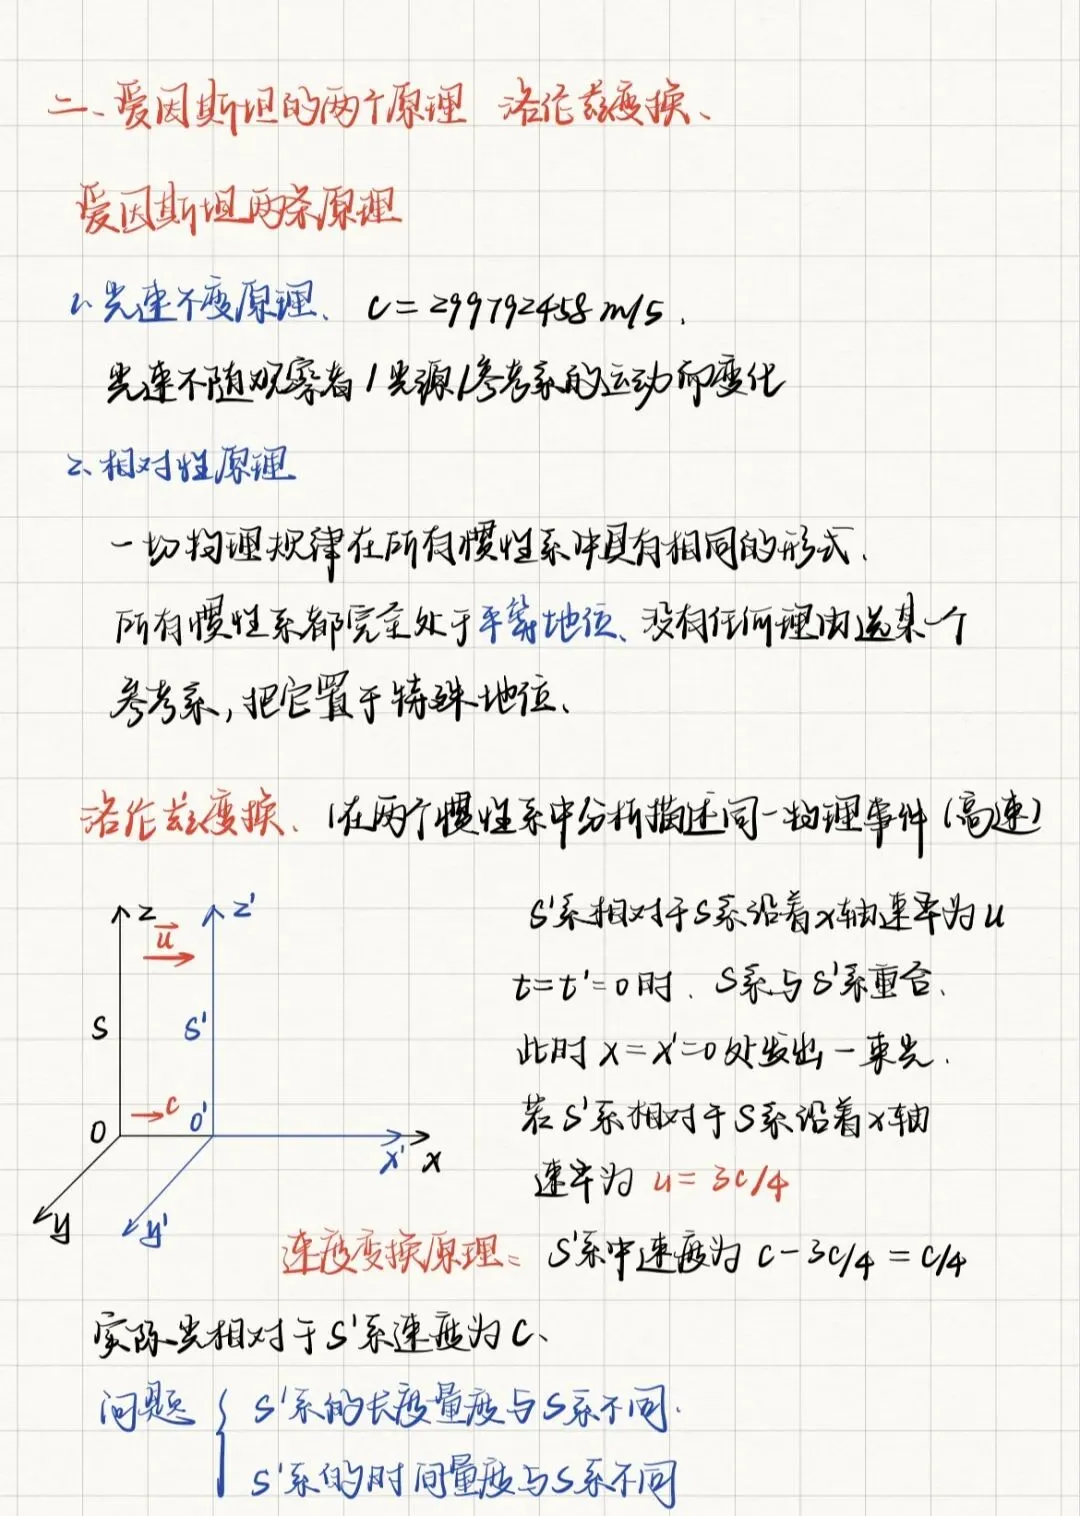 二、爱因斯坦的两个原理 洛伦兹变换、
爱因斯坦两条原理
1、光速不变原理、 c=299792458m/s.
光速不随观察者/光源/参考系的运动而变化
2、相对性原理
一切物理规律在所有惯性系中具有相同的形式.
所有惯性系都完全处于平等地位、没有任何理由选某个
参考系,把它置于特殊地位、
洛伦兹变换、(在两个惯性系中分析描述同一物理事件(高速)
z
z'
u
S
S'
c
O
O'
x'
x
y
y'
S'系相对于S系沿着x轴速率为u
t=t'=0时. S系与S'系重合.
此时x=x'=0处发出一束光.
若S'系相对于S系沿着x轴
速率为 u=3c/4
速度变换原理: S'系中速度为 c-3c/4=c/4
实际光相对于S'系速度为C、
问题
S'系的长度量度与S系不同.
S'系的时间量度与S系不同